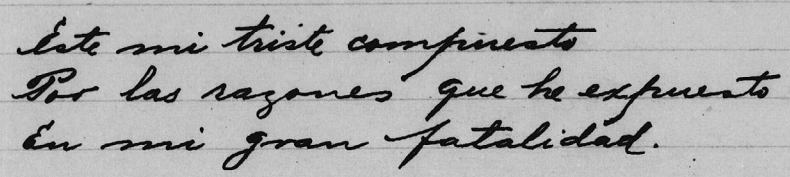 Este mi triste compuesto
Por las razones que he expuesto
En mi gran fatalidad.